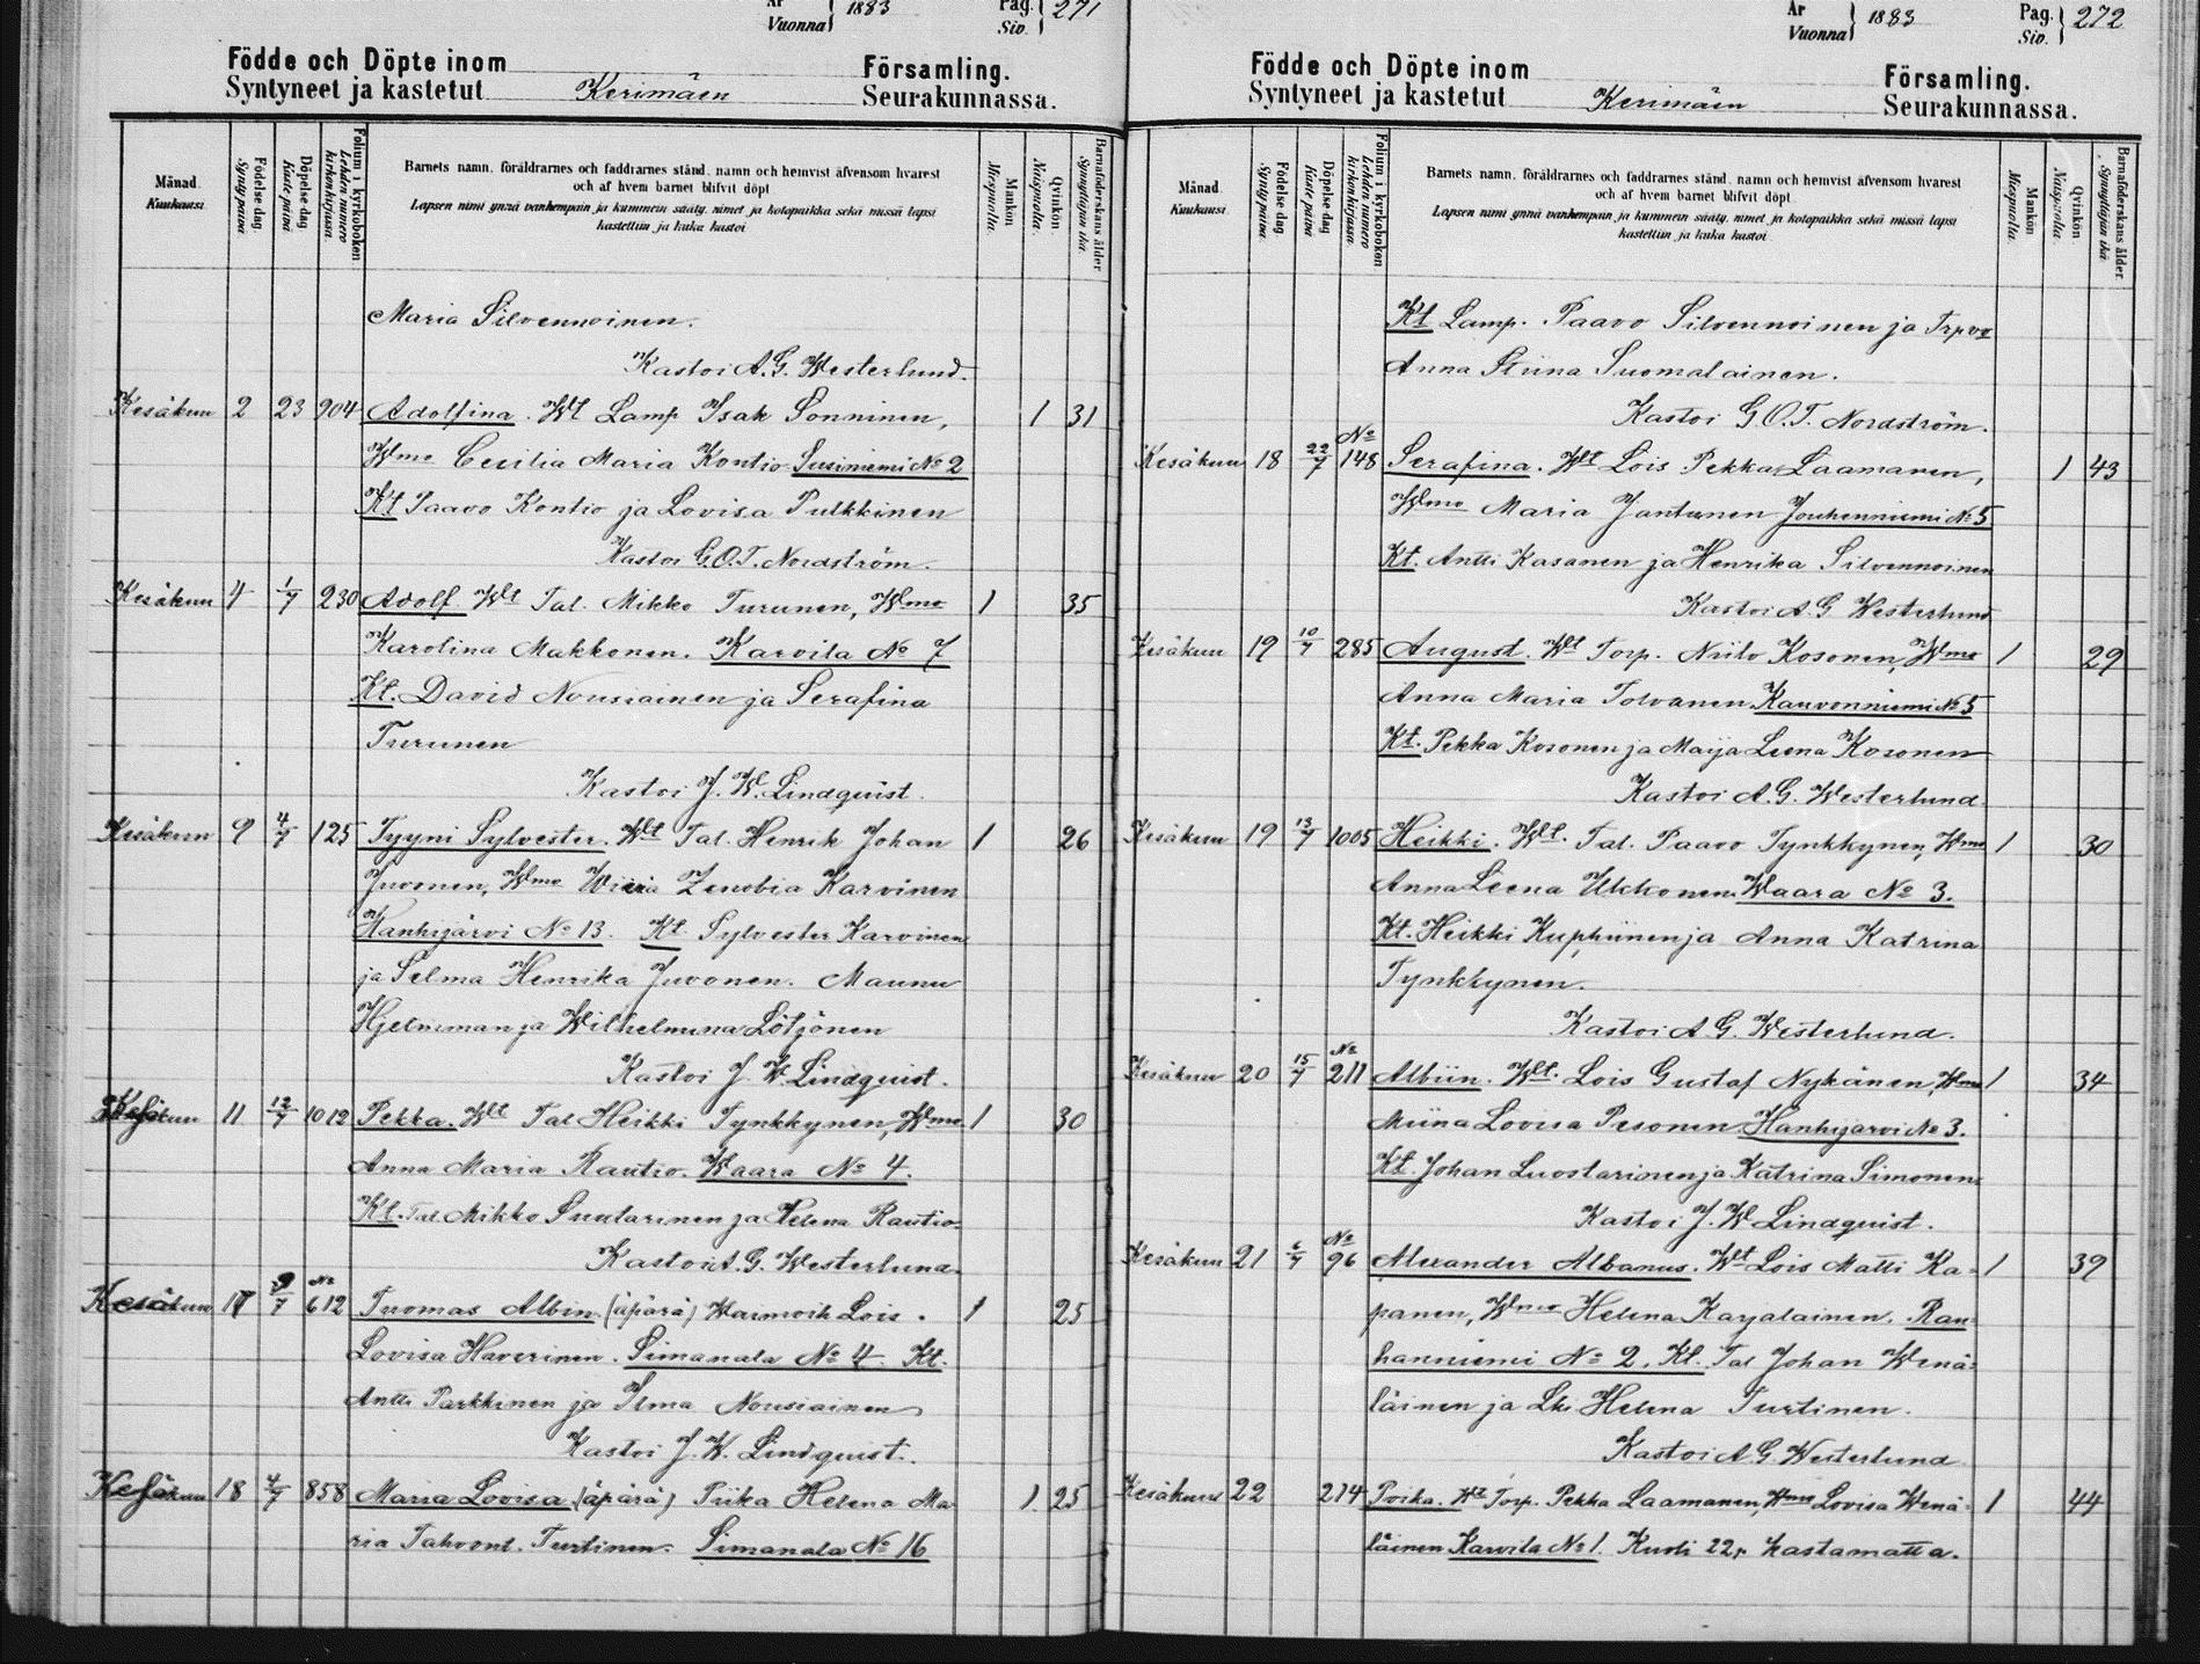 År Vuonna } 1883 Pag. Siv. } 271
Födde och Döpte inom Församling.
Syntyneet ja kastetut Kerimäen Seurakunnassa.
Månad. Kuukausi.
Födelse dag. Syntypäivä
Döpelse dag Kastepäivä
Folium i kyrkoboken Lehden numero kirkonkirjassa.
Barnets namn, föräldrarnes och faddrarnes stånd, namn och hemvist äfvensom hvarest
och af hvem barnet blifvit döpt
Lapsen nimi ynnä vanhempain ja kummein sääty, nimet ja kotopaikka sekä missä lapsi
kastettiin ja kuka kastoi
Mankön Miespuolia.
Qvinkön Naispuolia.
Barnaföderskans ålder Synnyttäjän ikä.
Maria Silvennoinen.
Kastoi A. G. Westerlund.
Kesäkuu 2 23 904 Adolfina. Wht Lamp Isak Sonninen, 1 31
Wmo Cecilia Maria Kontio Susiniemi No 2
Kt Paavo Kontio ja Lovisa Pulkkinen
Kastoi G. O. T. Nordström.
Kesäkuu 4 1/7 230 Adolf Wht Tal. Mikko Turunen, Wmo 1 35
Karolina Makkonen. Karvila No 7
Kt. David Nousiainen ja Serafina
Turunen
Kastoi J. W. Lindquist.
Kesäkuu 9 4/7 125 Tyyni Sylvester. Wht Tal. Henrik Johan 1 26
Juvonen, Wmo Zenobia Karvinen
Hanhijärvi No 13. Kt. Sylvester Karvinen
ja Selma Henrika Juvonen. Maunu
Hjelmman ja Wilhelmina Lötjönen
Kastoi J. W. Lindquist.
Kesäkuu 11 12/7 1012 Pekka. Wht Tal Heikki Tynkkynen, Wmo 1 30
Anna Maria Rautio. Waara No 4.
Kt. Tal Mikko Suutarinen ja Helena Rautio.
Kastoi A. G. Westerlund.
Kesäkuu 17 9/7 No 612 Tuomas Albin. (äpärä) Waimoih Lois. 1 25
Lovisa Haverinen. Simanala No 4. Kt.
Antti Parkkinen ja Ilma Nousiainen
Kastoi J. W. Lindquist.
Kesäkuu 18 4/7 858 Maria Lovisa (äpärä) Piika Helena Ma 1 25
ria Tahvont. Turtinen. Simanala No 16
År Vuonna } 1883 Pag. Siv. } 272
Födde och Döpte inom Församling.
Syntyneet ja kastetut Kerimäen Seurakunnassa.
Månad. Kuukausi.
Födelse dag. Syntypäivä.
Döpelse dag Kastepäivä.
Folium i kyrkoboken Lehden numero kirkonkirjassa.
Barnets namn, föräldrarnes och faddrarnes stånd, namn och hemvist äfvensom hvarest
och af hvem barnet blifvit döpt.
Lapsen nimi ynnä vanhempain ja kummein sääty, nimet ja kotopaikka sekä missä lapsi
kastettiin ja kuka kastoi.
Mankön Miespuolia.
Qvinkön Naispuolia.
Barnaföderskans ålder Synnyttäjän ikä
Kt Lamp. Paavo Silvennoinen ja Trpvo
Anna Stiina Suomalainen.
Kastoi G O. T. Nordström.
Kesäkuu 18 22/7 No 148 Serafina. Wht Lois Pekka Laamanen, 1 43
Wmo Maria Jantunen Jouhenniemi No 5
Kt. Antti Kasanen ja Henrika Silvennoinen
Kastoi A. G Westerlund
Kesäkuu 19 10/7 285 August. Wht Torp. Niilo Kosonen, Wmo 1 29
Anna Maria Tolvanen Kauvonniemi No 5
Kt. Pekka Kosonen ja Maija Leena Kosonen
Kastoi A. G. Westerlund
Kesäkuu 19 13/7 1005 Heikki. Wht. Tal. Paavo Tynkkynen, Wmo 1 30
Anna Leena Ukkonen. Waara No 3.
Kt. Heikki Kuphiinen ja Anna Katrina
Tynkkynen.
Kastoi A. G. Westerlund.
Kesäkuu 20 15/7 No 211 Albiin. Wht. Lois Gustaf Nykänen, Wmo 1 34
Miina Lovisa Pesonen. Hanhijärvi No 3.
Kt. Johan Luostarinen ja Katrina Simonen
Kastoi J. W Lindquist.
Kesäkuu 21 6/7 No 96 Alexander Albanus. Wht Lois Matti Ka- 1 39
panen, Wmo Helena Karjalainen. Rau
hanniemi No 2. Kt. Tal Johan Wenä-
läinen ja Lk. Helena Turtinen.
Kastoi A. G. Westerlund
Kesäkuu 22 214 Poika. Wht Torp. Pekka Laamanen, Wmo Lovisa Wenä- 1 44
läinen Karvila No 1. Kuoli 22p. kastamatta.